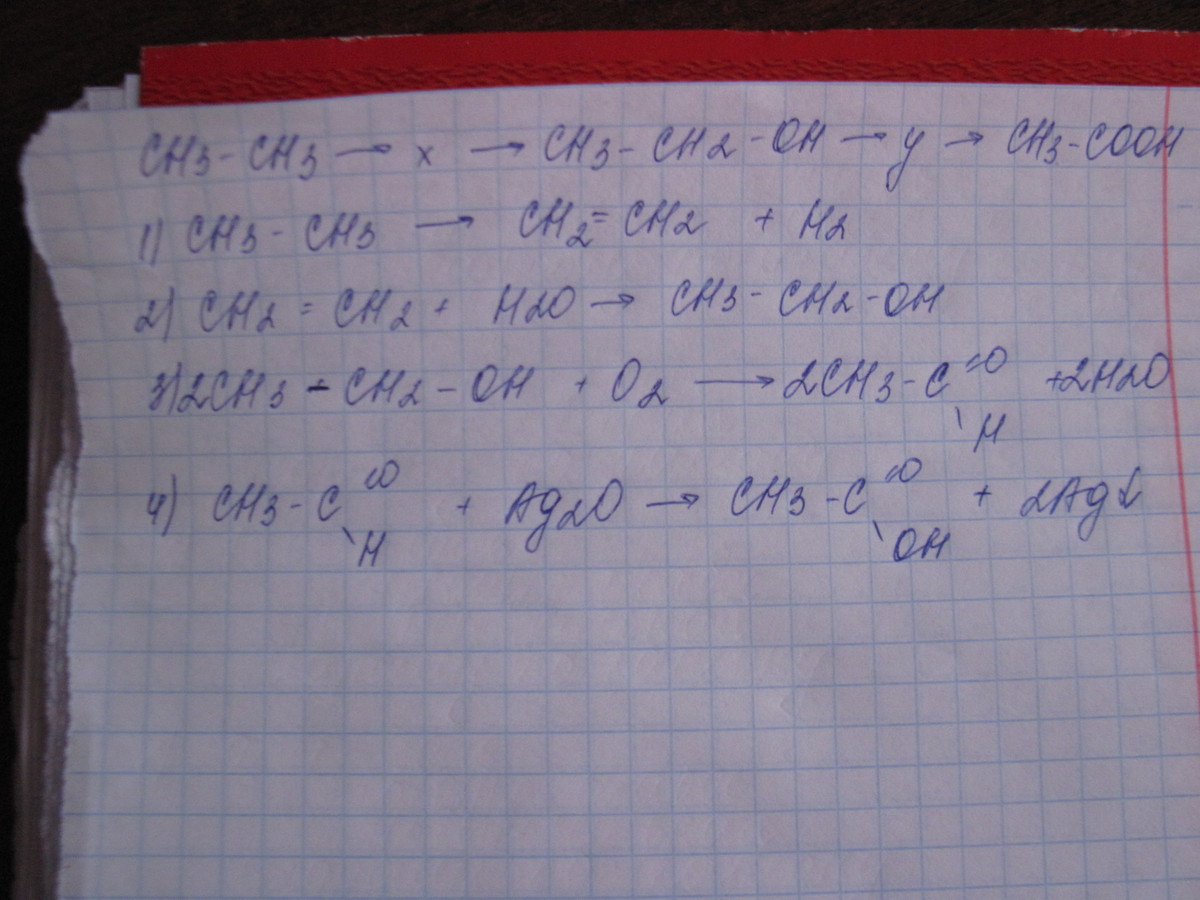 CH3 - CH3 → x → CH3 - CH2 - OH → y → CH3-COOH
1) CH3 - CH3 → CH2 = CH2 + H2
2) CH2 = CH2 + H2O → CH3 - CH2 - OH
3) 2CH3 - CH2 - OH + O2 → 2CH3 - C =O \ H + 2H2O
4) CH3 - C =O \ H + Ag2O → CH3 - C =O \ OH + 2Ag↓